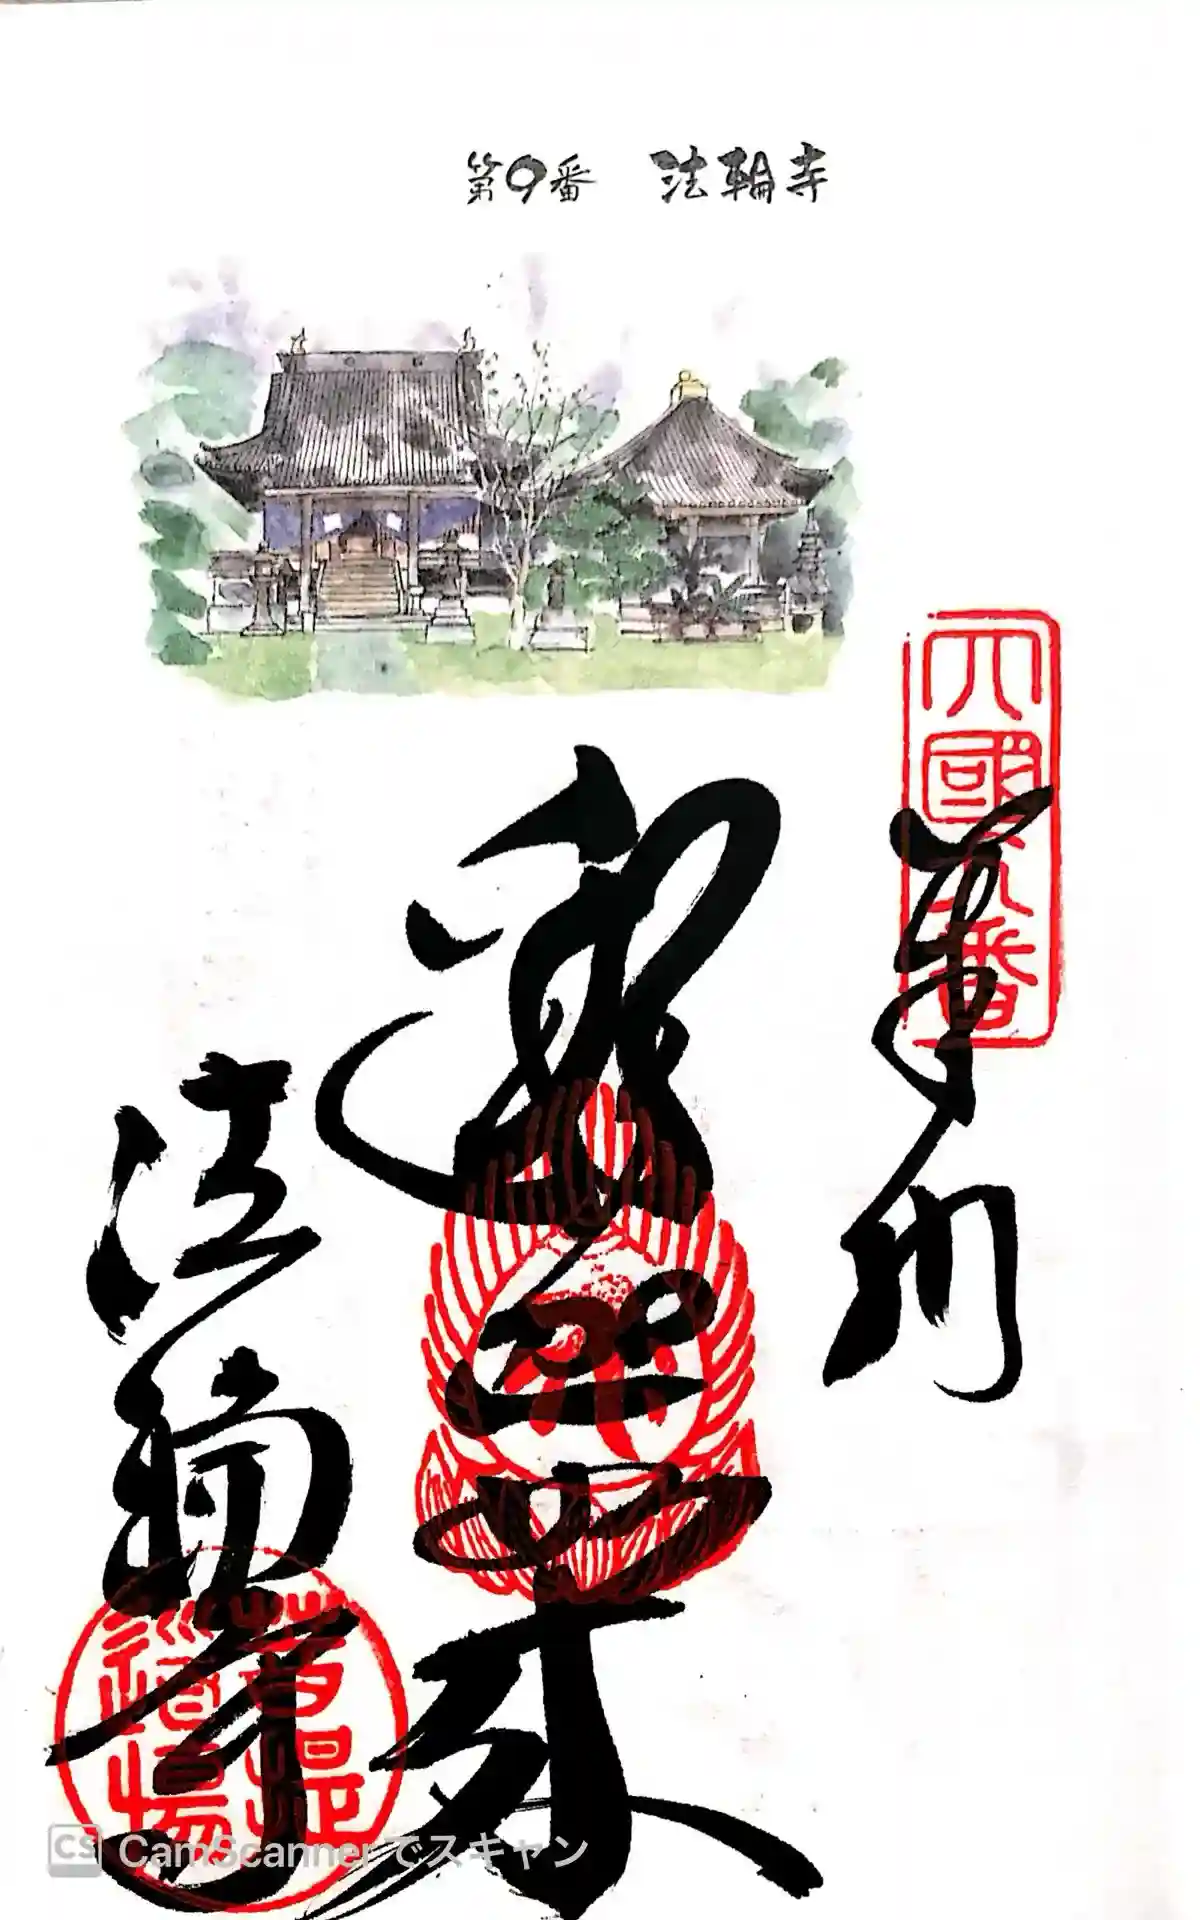 第9番　法輪寺
四國九番
奉納
如来
法輪寺
菩提
道場
CS CamScannerでスキャン